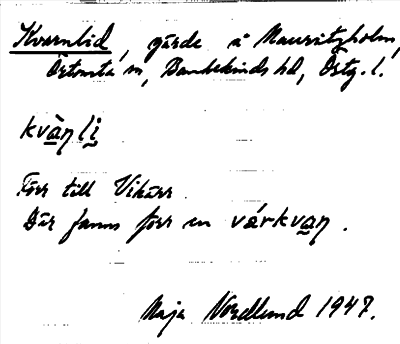 Kvarnlid, gärde å Mauritzholm,
Örtomta sn, Bankekinds hd, Östg. l.
kvàn li
Förr till Vikärr.
Där fanns förr en várkvan.
Maja Nordlund 1947.